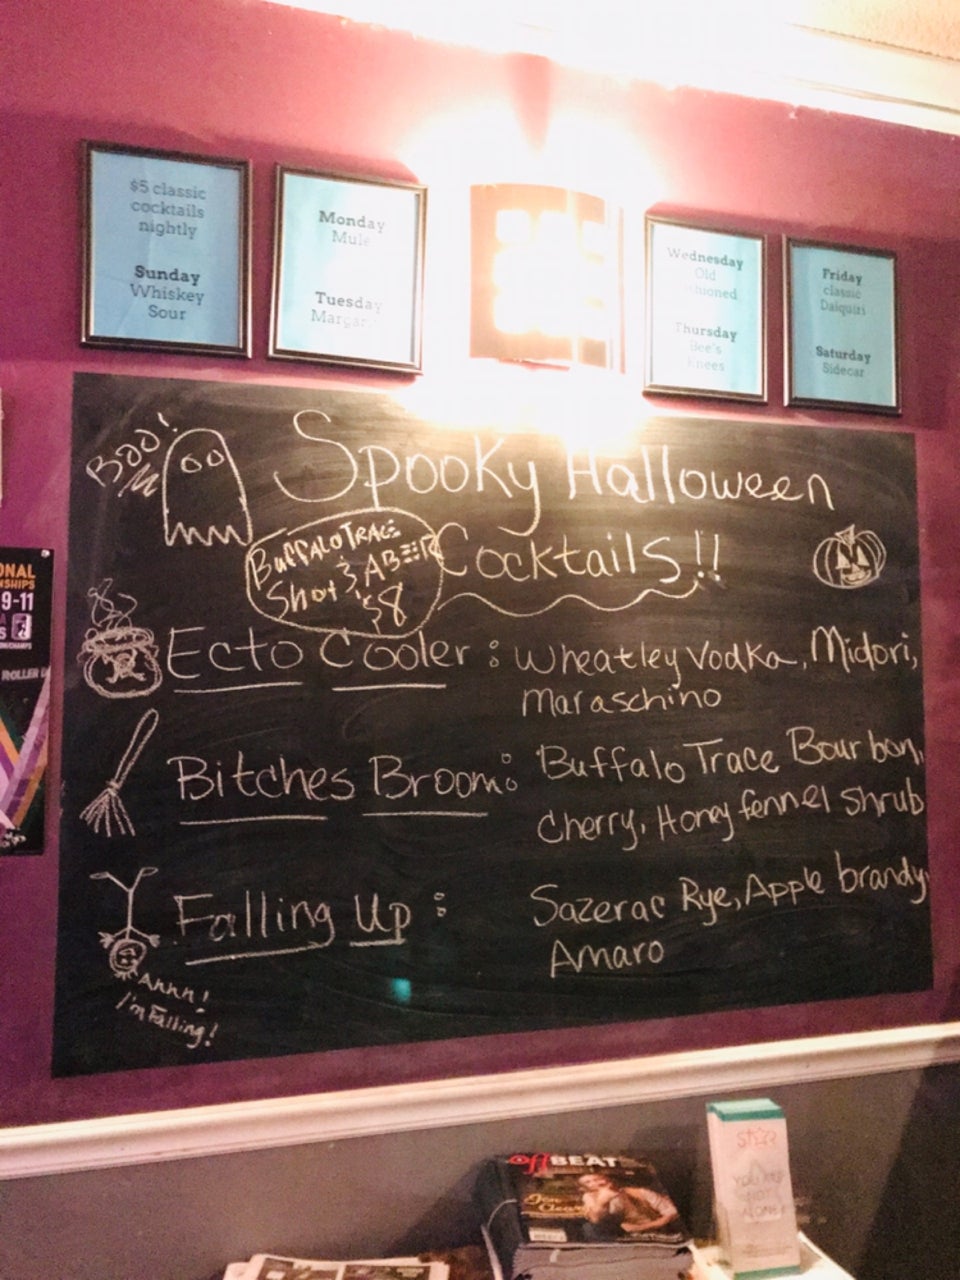 $5 classic
cocktails
nightly
Sunday
Whiskey
Sour
Monday
Mule
Tuesday
Margar
Wednesday
Old
shioned
Thursday
Bee's
Knees
Friday
classic
Daiquiri
Saturday
Sidecar
Boo!
Spooky Halloween
Cocktails!!
Buffalo Trace
Shot & A BEER
$8
Ecto Cooler : Wheatley Vodka, Midori,
Maraschino
Bitches Broom: Buffalo Trace Bourbon,
Cherry, Honey fennel shrub
Falling Up : Sazerac Rye, Apple brandy,
Amaro
Ahhh!
I'm Falling!
ONAL
NSHIPS
9-11
ROLLER
offBEAT
STAR
YOU ARE
NOT
ALONE